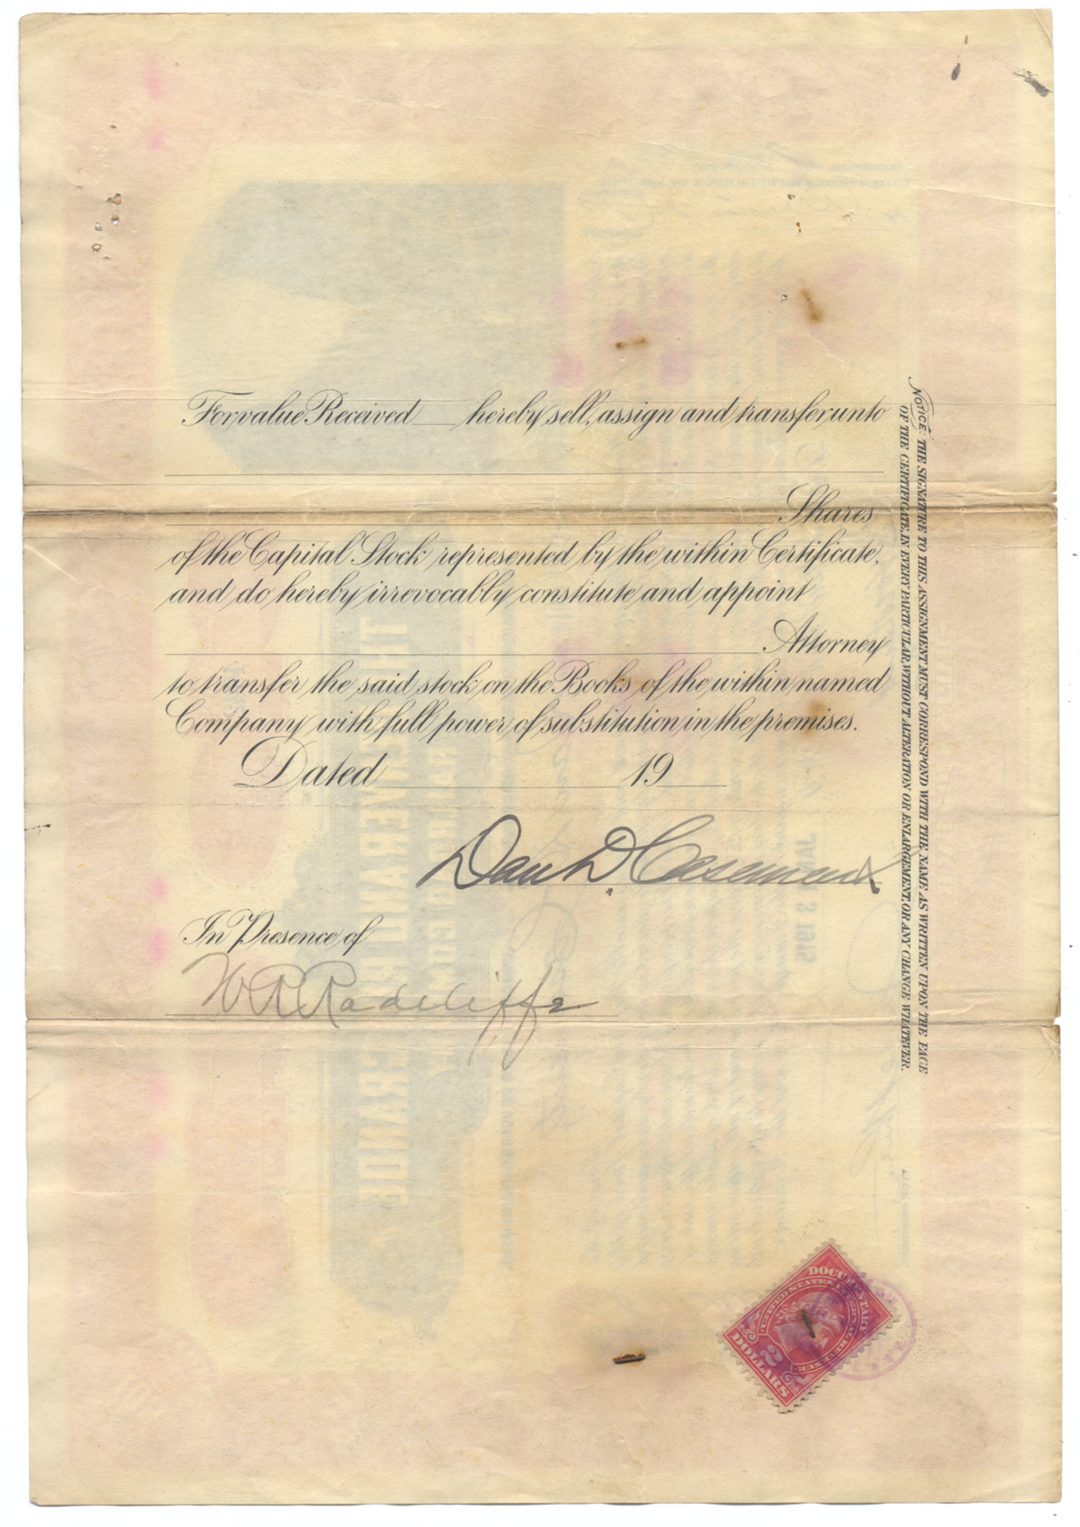 For value Received ___ hereby sell, assign and transfer unto
Shares
of the Capital Stock represented by the within Certificate,
and do hereby irrevocably constitute and appoint
Attorney
to transfer the said stock on the Books of the within named
Company with full power of substitution in the premises.
Dated 19
Dan D. Casement
In Presence of
W R Radcliffe
NOTICE. THE SIGNATURE TO THIS ASSIGNMENT MUST CORRESPOND WITH THE NAME AS WRITTEN UPON THE FACE
OF THE CERTIFICATE, IN EVERY PARTICULAR, WITHOUT ALTERATION OR ENLARGEMENT, OR ANY CHANGE WHATEVER.
DOCUMENTARY
2
DOLLARS